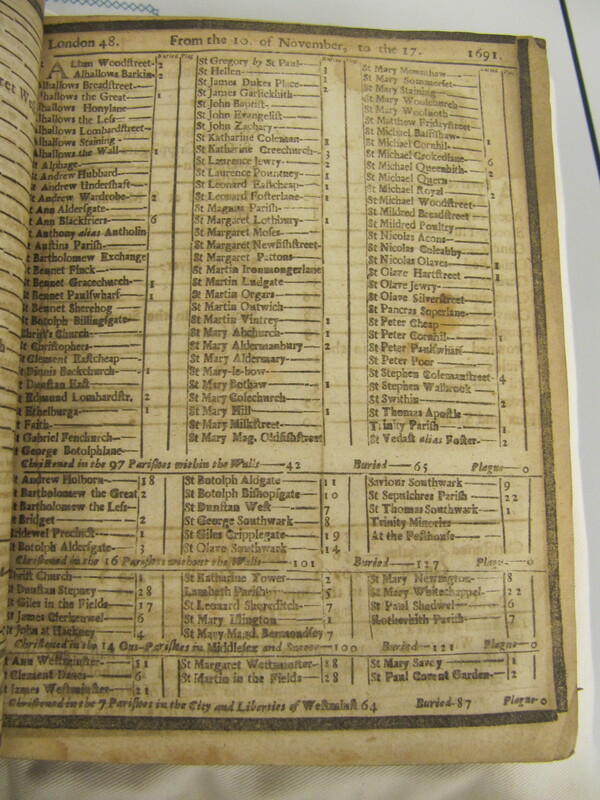 London 48. From the 10. of November, to the 17. 1691.
Alban Woodstreet 2
Alhallows Barkin 2
lhallows Breadstreet
lhallows the Great 1
lhallows Honylane
lhallows the Less
lhallows Lombardstreet
lhallows Staining
lhallows the Wall 1
t Alphage
t Andrew Hubbard
t Andrew Undershaft
t Andrew Wardrobe 2
t Ann Aldersgate
t Ann Blackfriers 6
t Anthony alias Antholin
t Austins Parish
t Bartholomew Exchange
t Bennet Finck
t Bennet Gracechurch 1
t Bennet Paulswharf 1
t Bennet Sherehog
t Botolph Billingsgate
hrist's Church 2
t Christophers
t Clement Eastcheap
t Dionis Backchurch 1
t Dunstan East
t Edmund Lombardstr. 2
t Ethelburga 1
t Faith
t Gabriel Fenchurch
t George Botolphlane
St Gregory by St Paul
St Hellen 3
St James Dukes Place 1
St James Garlickhith 2
St John Baptist
St John Evangelist
St John Zachary
St Katharine Coleman 1
St Katharine Creechurch 3
St Laurence Jewry 2
St Laurence Pountney 1
St Leonard Eastcheap 1
St Leonard Fosterlane 1
St Magnus Parish
St Margaret Lothbury 1
St Margaret Moses
St Margaret Newfishstreet
St Margaret Pattons
St Martin Ironmongerlane
St Martin Ludgate
St Martin Orgars
St Martin Outwich
St Martin Vintrey 1
St Mary Abchurch 1
St Mary Aldermanbury 2
St Mary Aldermary
St Mary-le-bow
St Mary Bothaw 1
St Mary Colechurch
St Mary Hill 1
St Mary Milkstreet
St Mary Mag. Oldfishstreet
St Mary Mounthaw
St Mary Sommerset
St Mary Staining
St Mary Woolchurch
St Mary Woolnoth
St Matthew Fridaystreet
St Michael Bassishaw 1
St Michael Cornhil
St Michael Crokedlane 6
St Michael Queenhith 2
St Michael Quern
St Michael Royal 2
St Michael Woodstreet
St Mildred Breadstreet
St Mildred Poultry
St Nicolas Acons
St Nicolas Coleabby
St Nicolas Olaves 1
St Olave Hartstreet 1
St Olave Jewry
St Olave Silverstreet
St Pancras Soperlane
St Peter Cheap
St Peter Cornhil 1
St Peter Paulswharf
St Peter Poor
St Stephen Colemanstreet 4
St Stephen Walbrook
St Swithin 2
St Thomas Apostle
Trinity Parish 1
St Vedast alias Foster 2
Christened in the 97 Parishes within the Walls 42 Buried 65 Plague 0
Andrew Holborn 18
t Bartholomew the Great 2
t Bartholomew the Less
t Bridget 2
ridewel Precinct 1
t Botolph Aldersgate 3
St Botolph Aldgate 11
St Botolph Bishopsgate 10
St Dunstan West 7
St George Southwark 8
St Giles Cripplegate 19
St Olave Southwark 14
Saviour Southwark 9
St Sepulchres Parish 22
St Thomas Southwark 1
Trinity Minories
At the Pesthouse
Christened in the 16 Parishes without the Walls 101 Buried 127 Plague 0
hrist Church
t Dunstan Stepney 28
t Giles in the Fields 17
t James Clerkenwel 6
t John at Hackney 4
St Katharine Tower 2
Lambeth Parish 5
St Leonard Shoreditch 7
St Mary Islington 1
St Mary Magd. Bermondsey 7
St Mary Newington 8
St Mary Whitechappel 22
St Paul Shadwel 6
Rotherhith Parish 7
Christened in the 14 Out-Parishes in Middlesex and Surrey 100 Buried 121 Plague 0
t Ann Westminster 11
t Clement Danes 6
t James Westminster 21
St Margaret Westminster 18
St Martin in the Fields 28
St Mary Savoy 1
St Paul Covent Garden 2
Christened in the 7 Parishes in the City and Liberties of Westminst 64 Buried 87 Plague 0